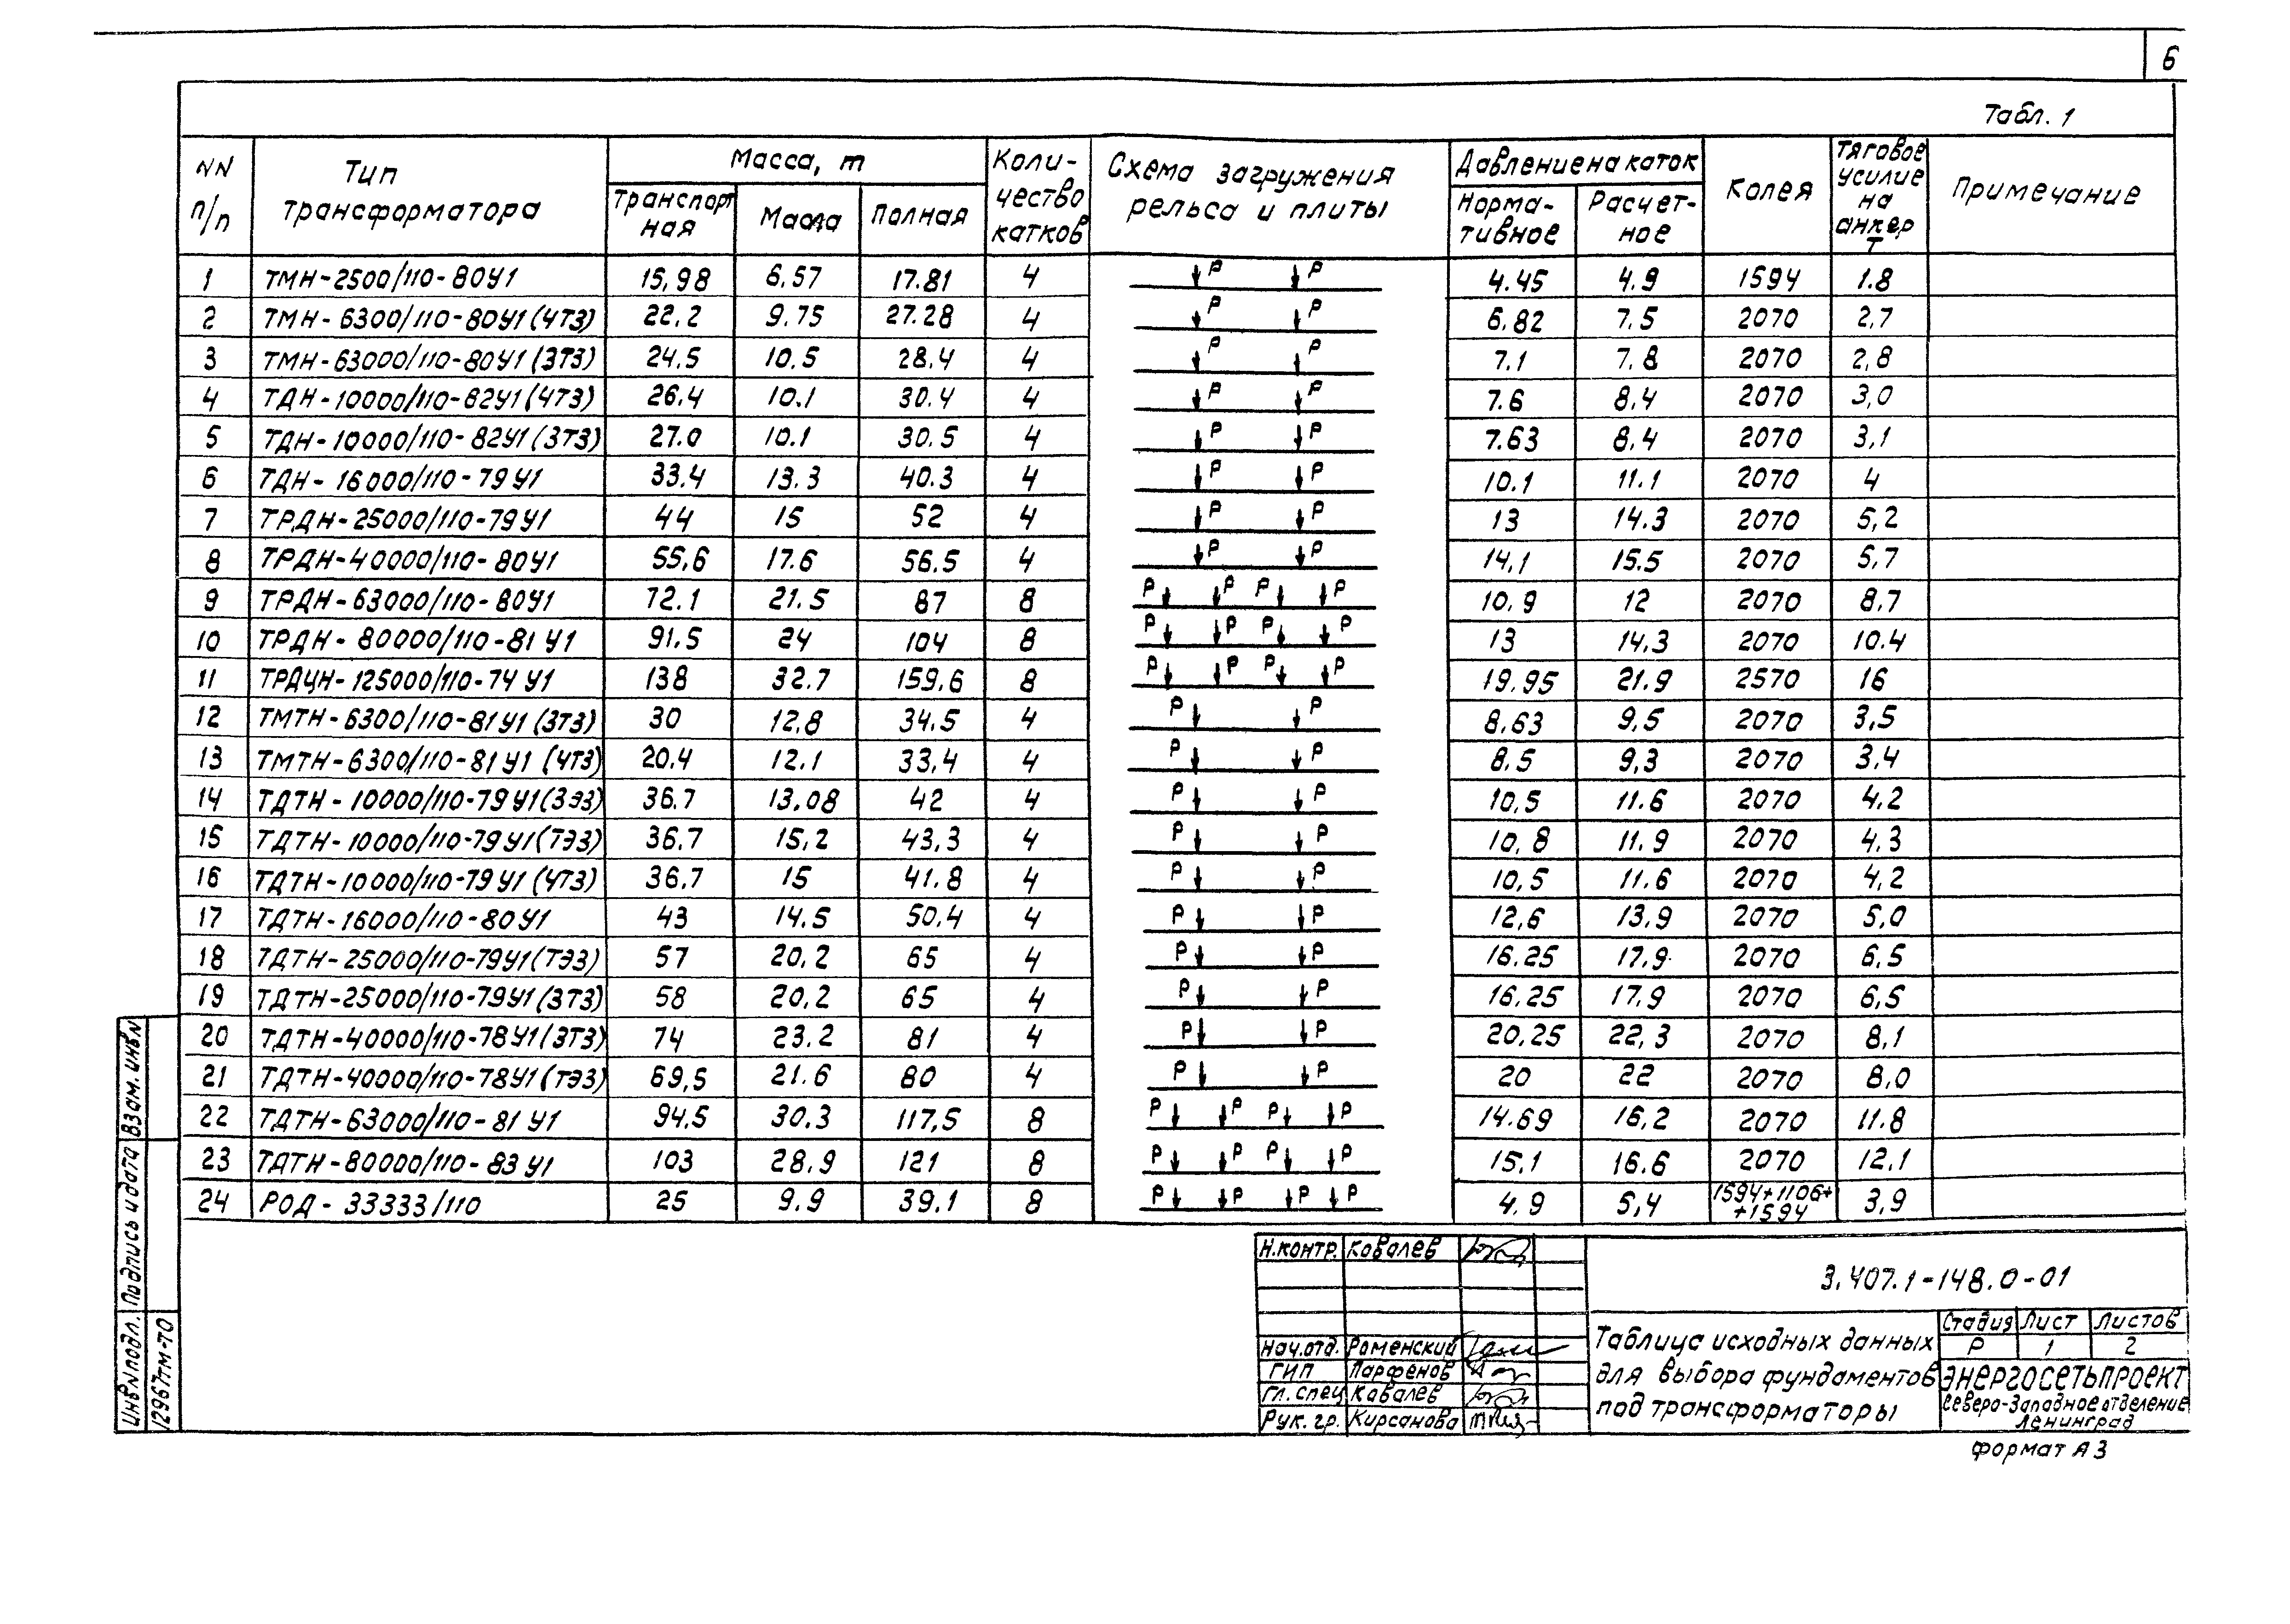 6
Табл. 1
NN п/п Тип трансформатора Масса, т Коли-чество катков Схема загружения рельса и плиты Давление на каток Колея Тяговое усилие на анкер Т Примечание
Транспортная Масла Полная Норма-тивное Расчет-ное
1 ТМН-2500/110-80У1 15,98 6,57 17.81 4 Р Р 4.45 4.9 1594 1.8
2 ТМН-6300/110-80У1 (ЧТЗ) 22,2 9.75 27.28 4 Р Р 6.82 7.5 2070 2,7
3 ТМН-63000/110-80У1 (ЗТЗ) 24,5 10.5 28,4 4 Р Р 7.1 7.8 2070 2,8
4 ТДН-10000/110-82У1 (ЧТЗ) 26.4 10.1 30.4 4 Р Р 7.6 8.4 2070 3,0
5 ТДН-10000/110-82У1 (ЗТЗ) 27.0 10.1 30.5 4 Р Р 7.63 8.4 2070 3,1
6 ТДН-16000/110-79У1 33.4 13.3 40.3 4 Р Р 10.1 11.1 2070 4
7 ТРДН-25000/110-79У1 44 15 52 4 Р Р 13 14.3 2070 5,2
8 ТРДН-40000/110-80У1 55,6 17.6 56.5 4 Р Р 14,1 15.5 2070 5,7
9 ТРДН-63000/110-80У1 72.1 21.5 87 8 Р Р Р Р 10,9 12 2070 8,7
10 ТРДН-80000/110-81У1 91.5 24 104 8 Р Р Р Р 13 14.3 2070 10.4
11 ТРДЦН-125000/110-74У1 138 32.7 159,6 8 Р Р Р Р 19.95 21.9 2570 16
12 ТМТН-6300/110-81У1 (ЗТЗ) 30 12,8 34.5 4 Р Р 8.63 9,5 2070 3,5
13 ТМТН-6300/110-81У1 (ЧТЗ) 20.4 12.1 33,4 4 Р Р 8.5 9,3 2070 3,4
14 ТДТН-10000/110-79У1 (ЗЭЗ) 36.7 13.08 42 4 Р Р 10,5 11.6 2070 4,2
15 ТДТН-10000/110-79У1 (ТЭЗ) 36.7 15,2 43,3 4 Р Р 10,8 11.9 2070 4,3
16 ТДТН-10000/110-79У1 (ЧТЗ) 36,7 15 41.8 4 Р Р 10,5 11.6 2070 4,2
17 ТДТН-16000/110-80У1 43 14.5 50,4 4 Р Р 12,6 13,9 2070 5,0
18 ТДТН-25000/110-79У1 (ТЭЗ) 57 20,2 65 4 Р Р 16.25 17,9 2070 6,5
19 ТДТН-25000/110-79У1 (ЗТЗ) 58 20,2 65 4 Р Р 16.25 17,9 2070 6,5
20 ТДТН-40000/110-78У1 (ЗТЗ) 74 23.2 81 4 Р Р 20,25 22,3 2070 8,1
21 ТДТН-40000/110-78У1 (ТЭЗ) 69,5 21.6 80 4 Р Р 20 22 2070 8,0
22 ТДТН-63000/110-81У1 94,5 30.3 117,5 8 Р Р Р Р 14.69 16,2 2070 11.8
23 ТДТН-80000/110-83У1 103 28.9 121 8 Р Р Р Р 15,1 16.6 2070 12,1
24 РОД-33333/110 25 9.9 39.1 8 Р Р Р Р 4.9 5,4 1594+1106++1594 3,9
Инв N подл. Подпись и дата Взам. инв N
12967тм-то
Н.контр. Ковалев
Нач.отд. Роменский
ГИП Парфенов
Гл. спец Ковалев
Рук. гр. Кирсанова
3.407.1-148.0-01
Таблица исходных данных
для выбора фундаментов
под трансформаторы
Стадия Лист Листов
Р 1 2
ЭНЕРГОСЕТЬПРОЕКТ
Северо-Западное отделение
Ленинград
Формат А3